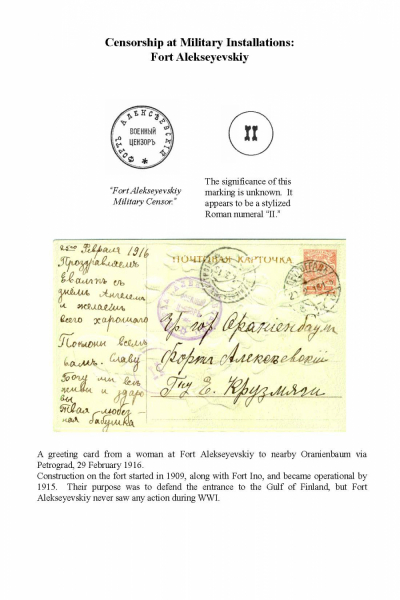 Censorship at Military Installations:
Fort Alekseyevskiy
ФОРТЪ АЛЕКСѢЕВСКІЙ
ВОЕННЫЙ
ЦЕНЗОРЪ
*
II
"Fort Alekseyevskiy
Military Censor."
The significance of this
marking is unknown. It
appears to be a stylized
Roman numeral "II."
Февраля 1916
ПОЧТОВАЯ КАРТОЧКА
Поздравляемъ
съ
днемъ Ангела
и желаемъ
всего хорошаго
всемъ
вамъ. Славу
Богу мы все
живы и здоро
вы
твоя любез
ная бабушка
гор Ораніенбаумъ
Форта Алексеевскій
Е.
A greeting card from a woman at Fort Alekseyevskiy to nearby Oranienbaum via
Petrograd, 29 February 1916.
Construction on the fort started in 1909, along with Fort Ino, and became operational by
1915. Their purpose was to defend the entrance to the Gulf of Finland, but Fort
Alekseyevskiy never saw any action during WWI.